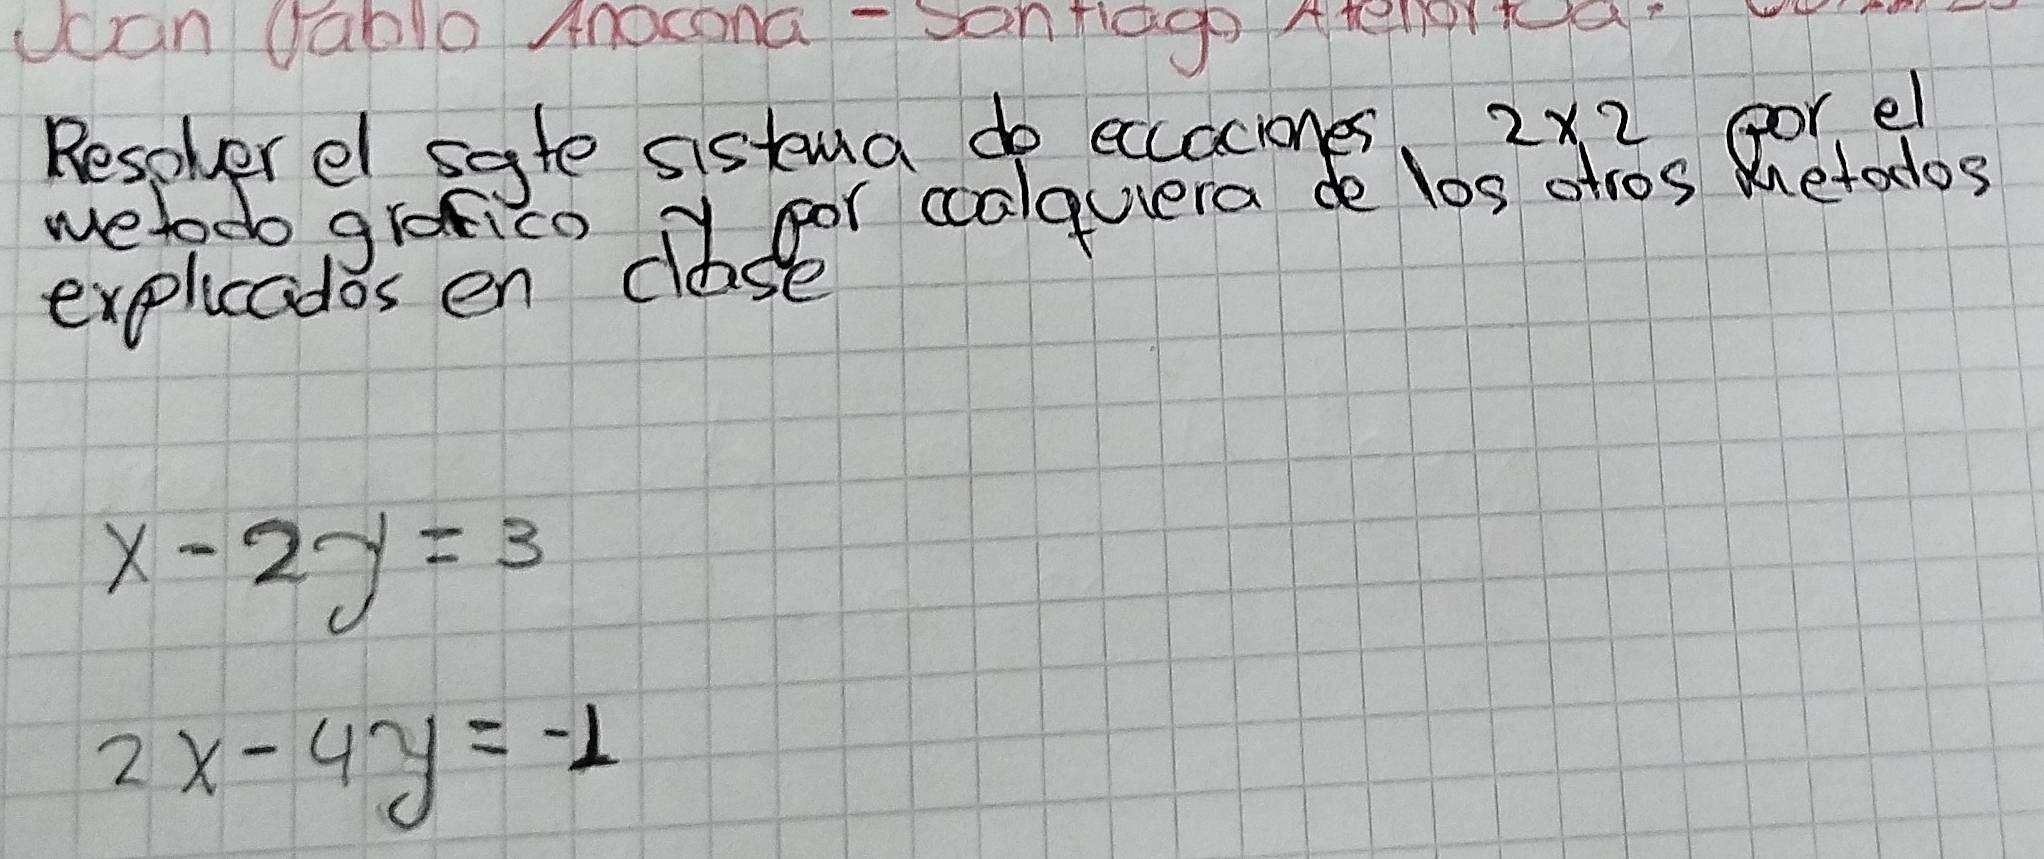 Juan Pablo Anacona - Santiago Atehortua.
Resolver el sgte sistema de ecuaciones 2x2 por el
metodo grafico y por cualquiera de los otros metodos
explicados en clase
x - 2y = 3
2x - 4y = -1